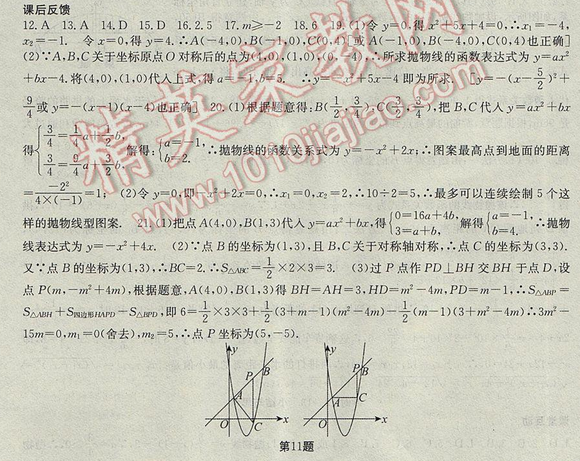 课后反馈
12. A  13. A  14. D  15. D  16. 2.5  17. m≥-2  18. 6  19. (1)令y=0,得x²+5x+4=0,∴x₁=-4,
x₂=-1. 令x=0,得y=4.∴A(-4,0),B(-1,0),C(0,4)[或A(-1,0),B(-4,0),C(0,4)也正确]
(2)∵A,B,C关于坐标原点O对称后的点为(4,0),(1,0),(0,-4),∴所求抛物线的函数表达式为y=ax²
+bx-4.将(4,0),(1,0)代入上式,得a=-1,b=5. ∴y=-x²+5x-4即为所求. [y=-(x-5/2)²+
9/4或y=-(x-1)(x-4)也正确]  20. (1)根据题意得:B(1/2,3/4),C(3/2,3/4),把B,C代入y=ax²+bx
得{3/4=1/4a+1/2b, 3/4=9/4a+3/2b. 解得:{a=-1, b=2. ∴抛物线的函数关系式为y=-x²+2x;∴图案最高点到地面的距离
=-2²/4×(-1)=1; (2)令y=0,即-x²+2x=0,∴x₁=0,x₂=2,∴10÷2=5,∴最多可以连续绘制5个这
样的抛物线型图案.  21. (1)把点A(4,0),B(1,3)代入y=ax²+bx,得{0=16a+4b, 3=a+b, 解得{a=-1, b=4. ∴抛物
线表达式为y=-x²+4x. (2)∵点B的坐标为(1,3),且B,C关于对称轴对称,∴点C的坐标为(3,3).
又∵点B的坐标为(1,3),∴BC=2.∴S△ABC=1/2×2×3=3. (3)过P点作PD⊥BH交BH于点D,设
点P(m,-m²+4m),根据题意,A(4,0),B(1,3)得BH=AH=3,HD=m²-4m,PD=m-1,∴S△ABP=
S△ABH+S四边形HAPD-S△BPD,即6=1/2×3×3+1/2(3+m-1)(m²-4m)-1/2(m-1)(3+m²-4m)∴3m²-
15m=0,m₁=0(舍去),m₂=5,∴点P坐标为(5,-5).
y P B A O C x
y P B A C O x
第11题
精英家教网
www.1010jiajiao.com